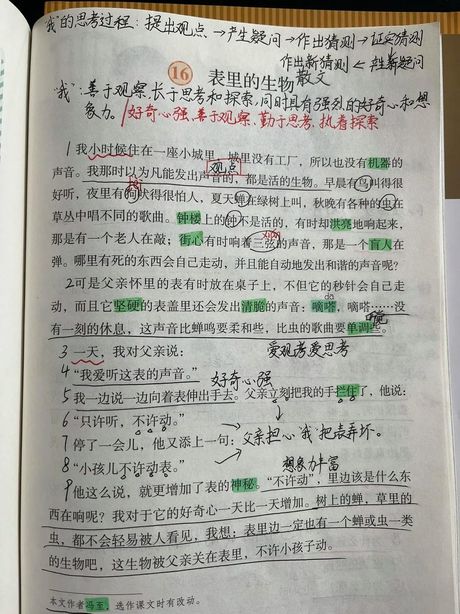 “我”的思考过程：提出观点→产生疑问→作出猜测→证实猜测
作出新猜测←产生新疑问
16 表里的生物
散文
“我”：善于观察、长于思考和探索，同时具有强烈的好奇心和想
象力。/好奇心强、善于观察、勤于思考、执着探索
1我小时候住在一座小城里，城里没有工厂，所以也没有机器的
观点
声音。我那时以为凡能发出声音的，都是活的生物。早晨有鸟叫得很
好听，夜里有狗吠得很怕人，夏天蝉在绿树上叫，秋晚有各种的虫在
草丛中唱不同的歌曲。钟楼上的钟不是活的，有时却洪亮地响起来，
那是有一个老人在敲；街心有时响着三弦的声音，那是一个盲人在
弹。哪里有死的东西会自己走动，并且能自动地发出和谐的声音呢？
2可是父亲怀里的表有时放在桌子上，不但它的秒针会自己走
动，而且它坚硬的表盖里还会发出清脆的声音：嘀嗒，嘀嗒……没
dā
有一刻的休息，这声音比蝉鸣要柔和些，比虫的歌曲要单调些。
3 一天，我对父亲说：
爱观考爱思考
4“我爱听这表的声音。”
好奇心强
5我一边说一边向着表伸出手去。父亲立刻把我的手拦住了，他说：
6“只许听，不许动。”
7停了一会儿，他又添上一句：
→父亲担心“我”把表弄坏。
8“小孩儿不许动表。”
想象力丰富
9他这么说，就更增加了表的神秘。“不许动”，里边该是什么东
西在响呢？我对于它的好奇心一天比一天增加。树上的蝉，草里的
虫，都不会轻易被人看见，我想：表里边一定也有一个蝉或虫一类
的生物吧，这生物被父亲关在表里，不许小孩子动。
本文作者冯至，选作课文时有改动。